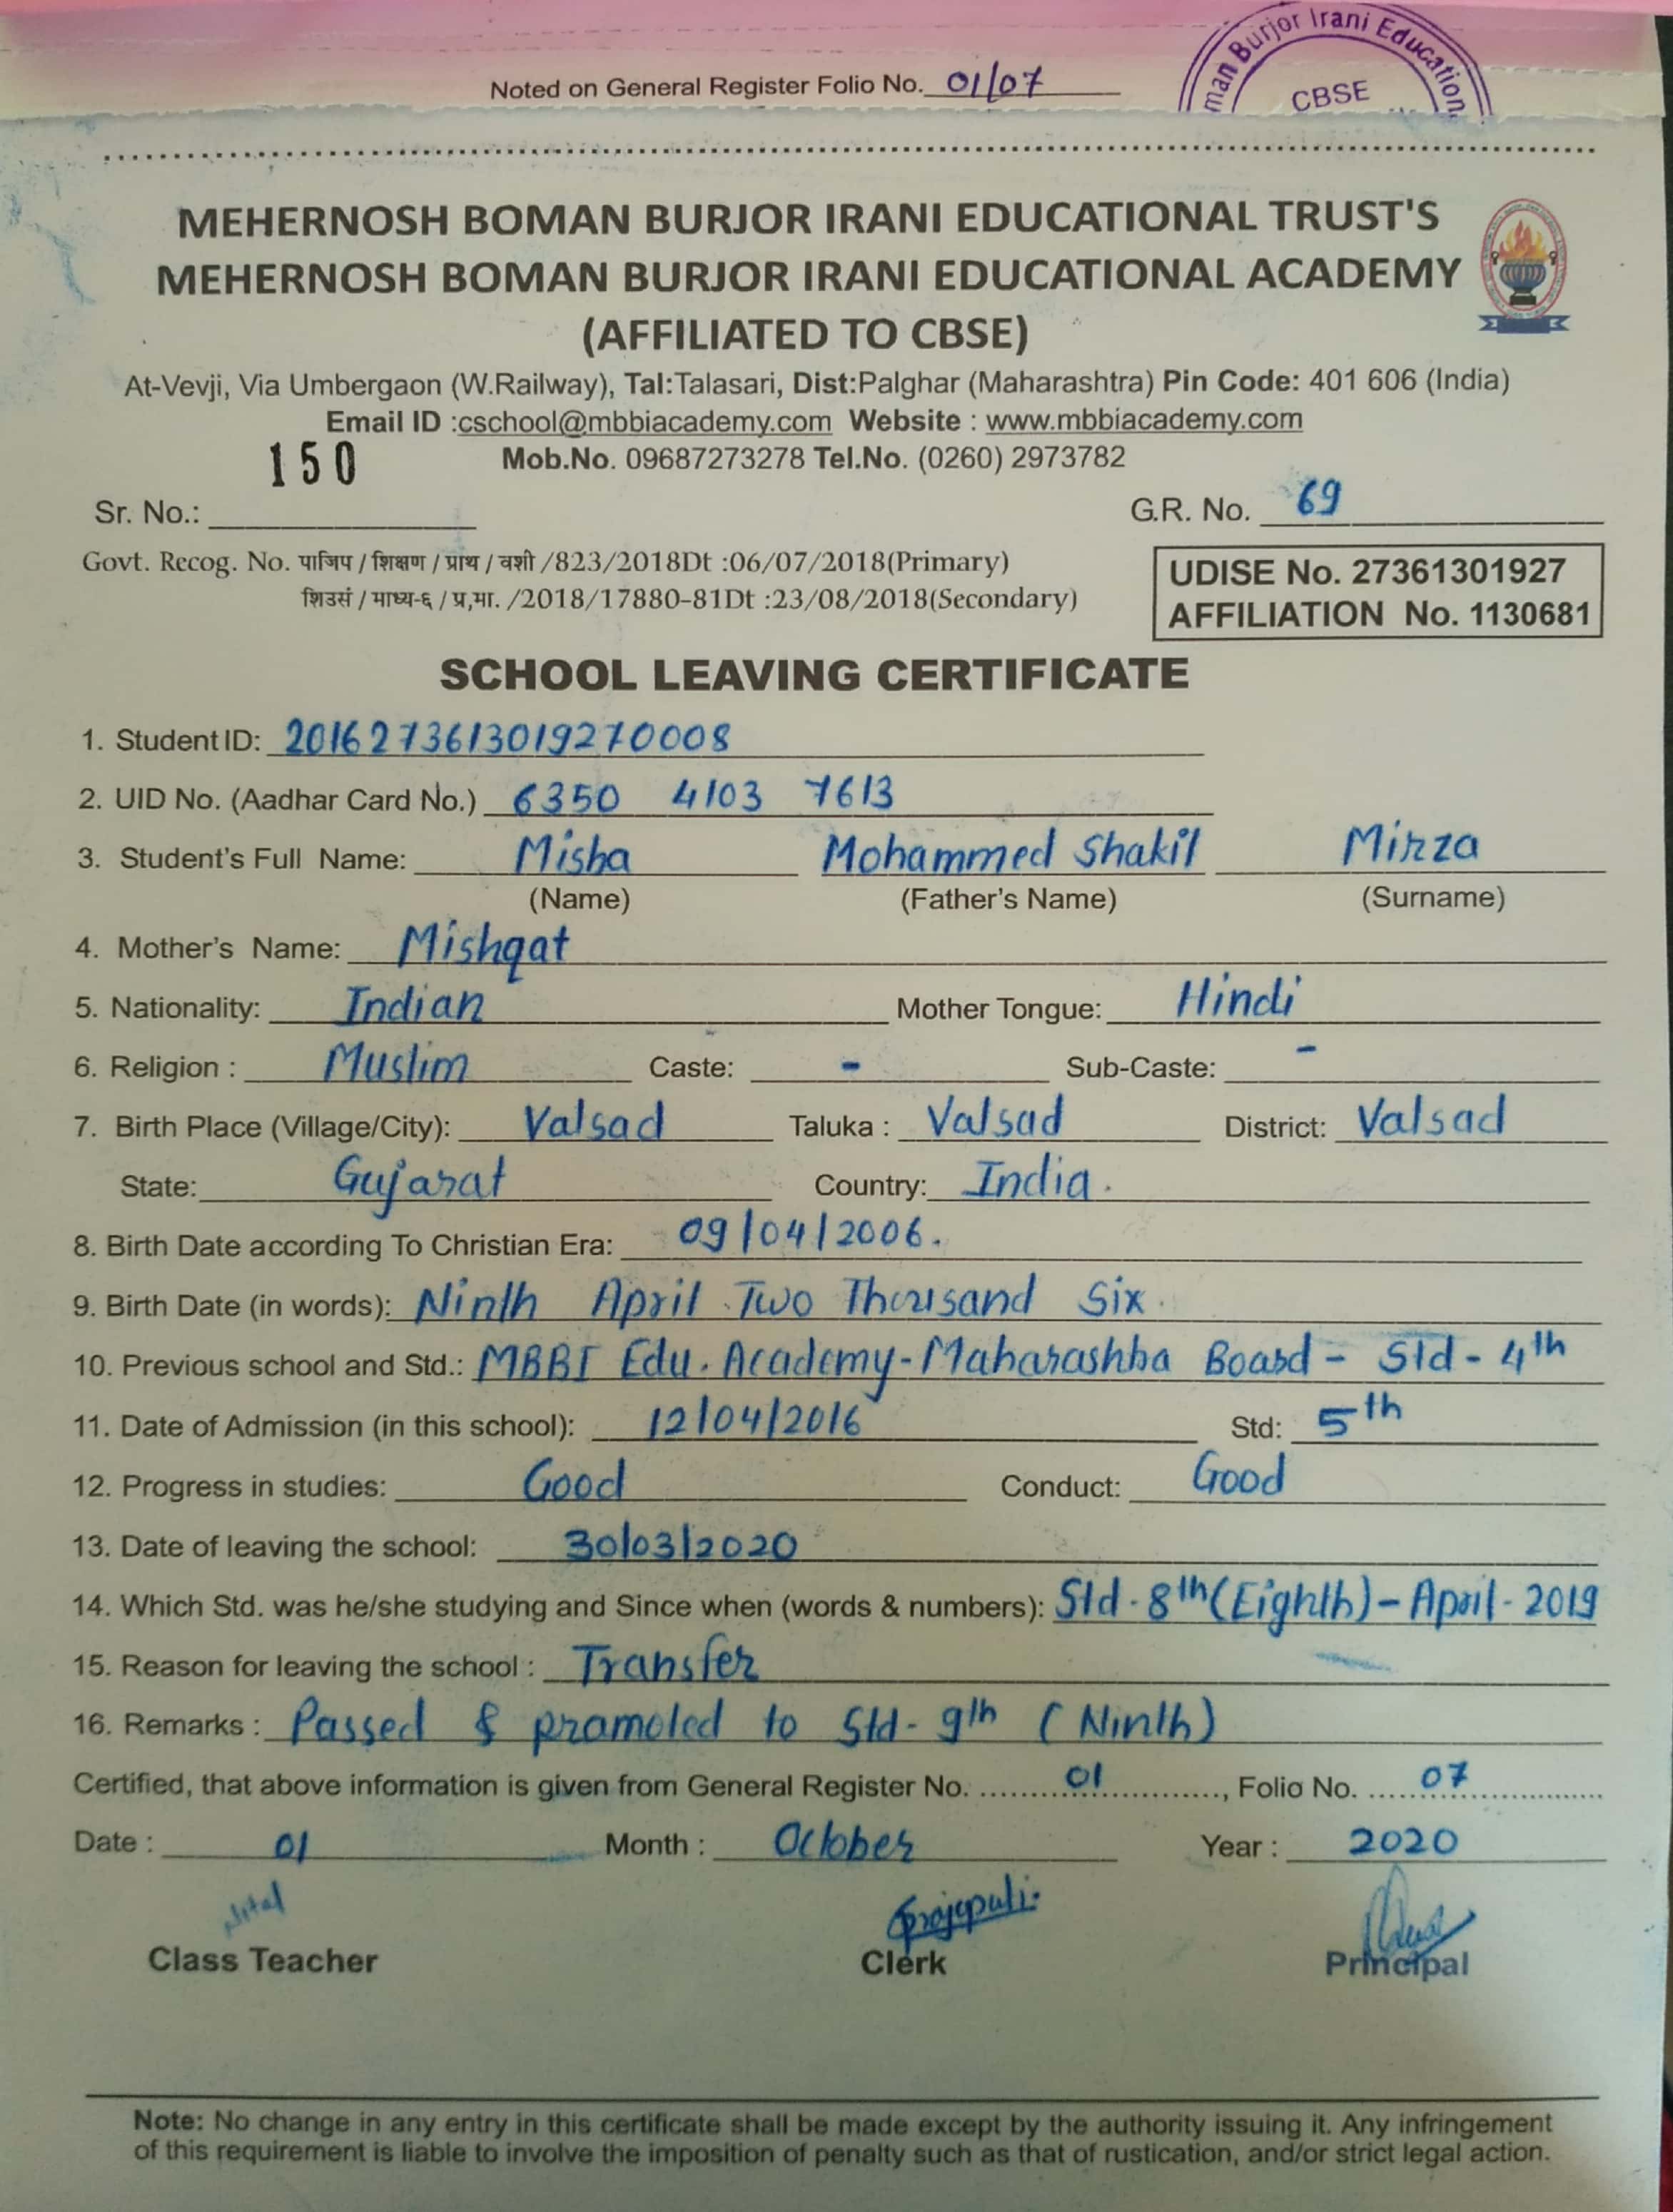 Noted on General Register Folio No. 01/07
man Burjor Irani Education
CBSE
MEHERNOSH BOMAN BURJOR IRANI EDUCATIONAL TRUST'S
MEHERNOSH BOMAN BURJOR IRANI EDUCATIONAL ACADEMY
(AFFILIATED TO CBSE)
At-Vevji, Via Umbergaon (W.Railway), Tal:Talasari, Dist:Palghar (Maharashtra) Pin Code: 401 606 (India)
Email ID :cschool@mbbiacademy.com Website : www.mbbiacademy.com
150 Mob.No. 09687273278 Tel.No. (0260) 2973782
Sr. No.: G.R. No. 69
Govt. Recog. No. पाजिप / शिक्षण / प्राथ / वशी /823/2018Dt :06/07/2018(Primary)
शिउसं / माध्य-६ / प्र,मा. /2018/17880-81Dt :23/08/2018(Secondary)
UDISE No. 27361301927
AFFILIATION No. 1130681
SCHOOL LEAVING CERTIFICATE
1. Student ID: 2016273613019270008
2. UID No. (Aadhar Card No.) 6350 4103 7613
3. Student's Full Name: Misba Mohammed Shakil Mirza
(Name) (Father's Name) (Surname)
4. Mother's Name: Mishqat
5. Nationality: Indian Mother Tongue: Hindi
6. Religion : Muslim Caste: - Sub-Caste: -
7. Birth Place (Village/City): Valsad Taluka : Valsad District: Valsad
State: Gujarat Country: India.
8. Birth Date according To Christian Era: 09/04/2006.
9. Birth Date (in words): Ninth April Two Thousand Six.
10. Previous school and Std.: MBBI Edu. Academy-Maharashtra Board - Std - 4th
11. Date of Admission (in this school): 12/04/2016 Std: 5th
12. Progress in studies: Good Conduct: Good
13. Date of leaving the school: 30/03/2020
14. Which Std. was he/she studying and Since when (words & numbers): Std - 8th (Eighth) - April - 2019
15. Reason for leaving the school : Transfer
16. Remarks : Passed & pramoted to Std - 9th (Ninth)
Certified, that above information is given from General Register No. 01, Folio No. 07
Date : 01 Month : October Year : 2020
Prajapati
Class Teacher Clerk Principal
Note: No change in any entry in this certificate shall be made except by the authority issuing it. Any infringement
of this requirement is liable to involve the imposition of penalty such as that of rustication, and/or strict legal action.